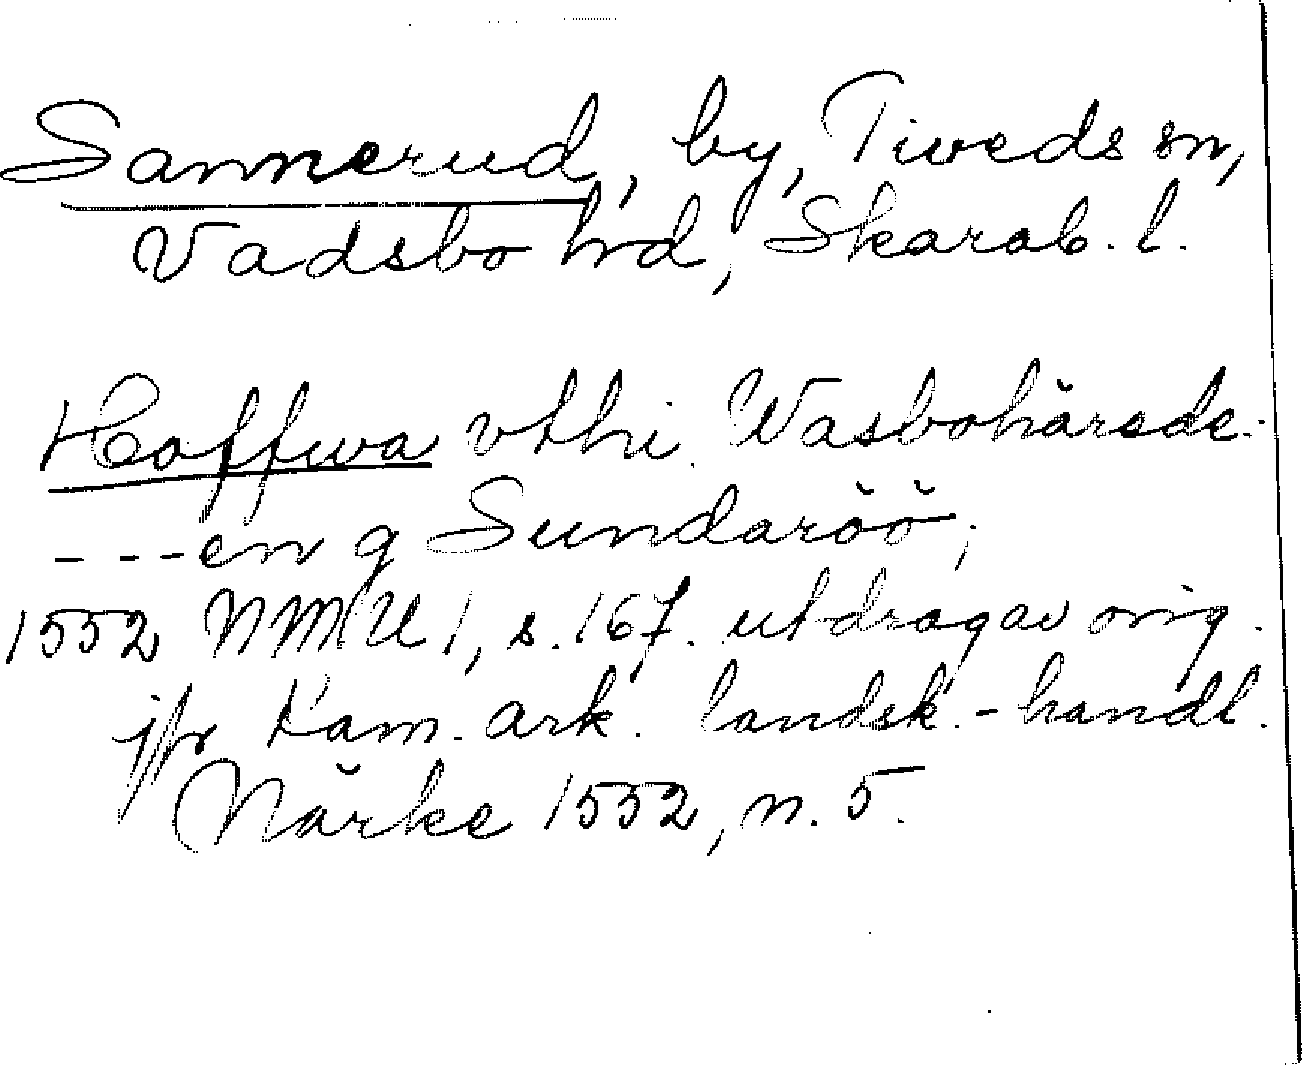 Sannerud, by, Tiveds sn,
Vadsbo hrd, Skarab. l.
Hoffwa vthi Wasbohärede
---en g Sundaröö;
1552 NMU 1, s. 167. utdrag av orig.
jfr Kam. ark. landsk.-handl.
Närke 1552, n. 5.